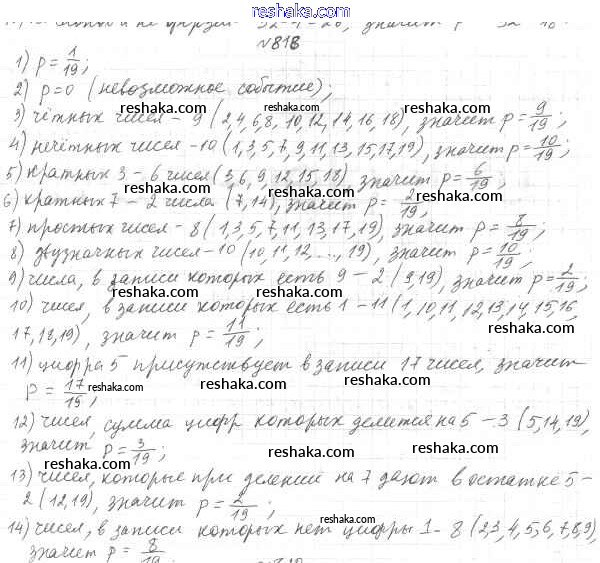 www.reshaka.com
№818
1) p = 1/19;
2) p=0 (невозможное событие);
reshaka.com reshaka.com
3) чётных чисел – 9 (2,4,6,8,10,12,14,16,18), значит p = 9/19;
4) нечётных чисел –10 (1,3,5,7,9,11,13,15,17,19), значит p = 10/19;
reshaka.com reshaka.com reshaka.com
5) кратных 3 – 6 чисел (3,6,9,12,15,18), значит p = 6/19;
6) кратных 7 – 2 числа (7,14), значит p = 2/19;
reshaka.com reshaka.com reshaka.com
7) простых чисел – 8 (1,3,5,7,11,13,17,19), значит p = 8/19;
8) двузначных чисел –10 (10,11,12,..., 19), значит p = 10/19;
reshaka.com reshaka.com reshaka.com
9) числа, в записи которых есть 9 – 2 (9,19), значит p = 2/19;
10) чисел, в записи которых есть 1 – 11 (1,10,11,12,13,14,15,16,
reshaka.com
17,18,19), значит p = 11/19;
reshaka.com reshaka.com
11) цифра 5 присутствует в записи 17 чисел, значит
p = 17/19;
reshaka.com reshaka.com reshaka.com
12) чисел, сумма цифр которых делится на 5 – 3 (5,14,19),
значит p = 3/19;
reshaka.com reshaka.com reshaka.com
13) чисел, которые при делении на 7 дают в остатке 5 –
2 (12,19), значит p = 2/19;
reshaka.com reshaka.com reshaka.com
14) чисел, в записи которых нет цифры 1 – 8 (2,3,4,5,6,7,8,9),
значит p = 8/19
reshaka.com reshaka.com reshaka.com